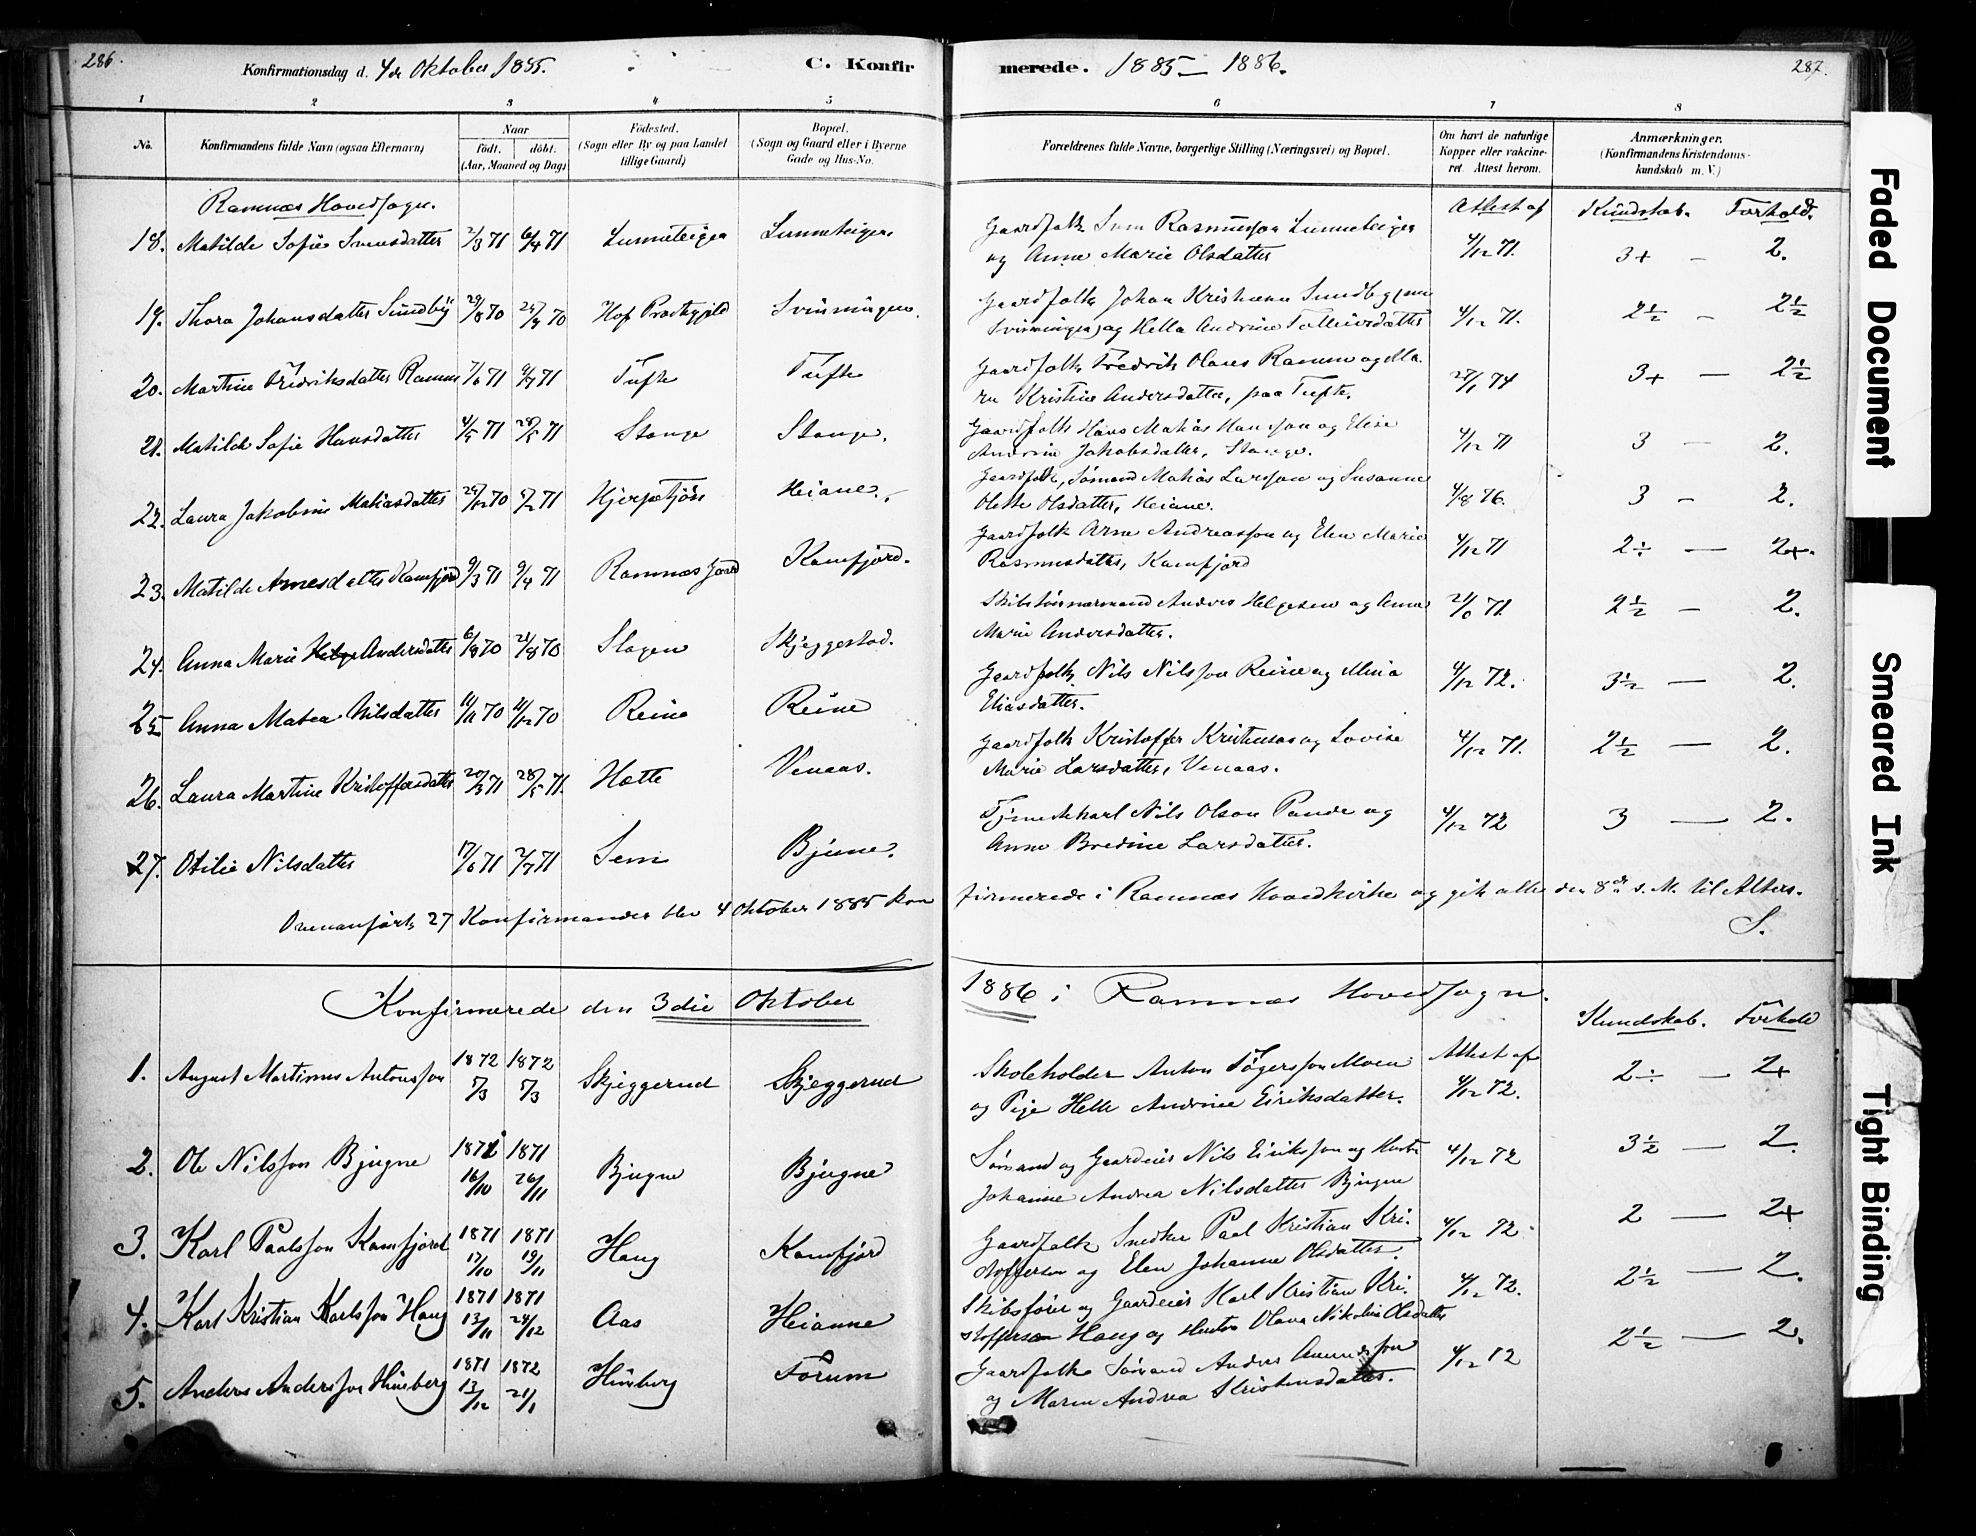 286.
Konfirmationsdag d. 4de Oktober 1885. C. Konfir
merede. 1885 — 1886.
287.
1 2 3 4 5 6 7 8
No.
Konfirmandens fulde Navn (ogsaa Efternavn)
Naar
født. døbt.
(Aar, Maaned og Dag)
Fødested.
(Sogn eller By og paa Landet
tillige Gaard)
Bopæl.
(Sogn og Gaard eller i Byerne
Gade og Hus-No.
Forældrenes fulde Navne, borgerlige Stilling (Næringsvei) og Bopæl.
Om havt de naturlige
Kopper eller vakcine-
ret. Attest herom.
Anmærkninger.
(Konfirmandens Kristendoms-
kundskab m. V.)
Ramnæs Hovedsogn.
Attest af Kundskab. Forhold.
18. Matilde Sofie Svensdatter 2/3 71 6/4 71 Gaardfolk Sven Rasmusson
og Anne Marie Olsdatter 4/12 71. 3+ – 2.
19. Thora Johansdatter Sundby 29/8 70 70 Hof Svinningen. Gaardfolk Johan Kristian
Svinningen og Helle Andrine 4/12 71. 2½ – 2½
20. Martine Fredriksdatter Ramnæs 7/6 71 9/7 71 Tufte Tufte Gaardfolk Fredrik Olaus Ramnæs og Ma-
ren Kristine Andersdatter, paa Tufte. 27/1 74 3+ – 2½
21. Matilde Sofie Hansdatter 4/5 71 28/5 71 Stange Stange. Gaardfolk Hans Matias Hansson og Elise
Andrine Jakobsdatter, Stange. 4/12 71 3 – 2.
22. Laura Jakobine Matiasdatter 29/12 70 5/2 71 Hjerpetjøn Heiane. Gaardfolk, Sømand Matias Larsson og Susanne
Olette Olsdatter, Heiane. 4/8 76. 3 – 2.
23. Matilde Arnesdatter Kamfjord 9/3 71 9/4 71 Ramnæs Gaard Kamfjord. Gaardfolk Arne Andreasson og Elen Marie
Rasmusdatter, Kamfjord 4/12 71 2÷ – 2+.
24. Anna Marie Andersdatter 6/8 70 21/8 70 Slagen Skjeggestad. Anders Helgesen og Anne
Marie Andersdatter. 71. 2½ – 2.
25. Anna Matea Nilsdatter 10/11 70 11/12 70 Reine Reine Gaardfolk Nils Nilsson Reine og Mina
Eliasdatter. 4/12 72. 3½ – 2.
26. Laura Martine Kristoffersdatter 20/3 71 28/5 71. Hotte Venaas. Gaardfolk Kristoffer Kristensen og Lovise
Marie Larsdatter, Venaas. 4/12 71. 2½ – 2.
27. Otilie Nilsdatter 17/6 71 2/7 71 Sem Bjune. Tjenestekarl Nils Olson Pande og
Anne Bredine Larsdatter. 4/12 72 3 – 2.
Ovenanførte 27 Konfirmander blev 4 Oktober 1885 kon
firmerede i Ramnæs Hovedkirke og gik alle den 8de s. M. til Alters.
S.
Konfirmerede den 3die Oktober
1886 i Ramnæs Hovedsogn.
Kundskab. Forhold
1. August Martinus Antonsson 1872 7/3 1872 5/3 Skjeggerud Skjeggerud Skoleholder Anton Moen
og Pige Helle Andrine Eiriksdatter. Attest af 4/12 72. 2÷ – 2+
2. Ole Nilsson Bjugne 1871 16/10 1871 26/11 Bjugne Bjugne Sømand og Gaardeier Nils Eiriksson og Hustr
Johanne Andrea Nilsdatter Bjugne 4/12 72 3½ – 2.
3. Karl Paalsson Kamfjord 1871 17/10 1871 19/11 Haug Kamfjord Gaardfolk Snedker Paal Kristian Kri-
stofferson og Elen Johanne Olsdatter. 4/12 72. 2 – 2+
4. Karl Kristian Karlsson Haug 1871 13/11 1871 24/12 Aas Heianne Skibsfører og Gaardeier Karl Kristian Kri-
stofferson Haug og Hustru Olava Nikoline Olsdatter 4/12 72. 2½ – 2.
5. Anders Andersson Himberg 1871 13/12 1872 21/1 Himberg Forum Gaardfolk Sømand Anders
og Maren Andrea Kristensdatter. 4/12 2½ – 2.
Faded Document
Smeared Ink
Tight Binding